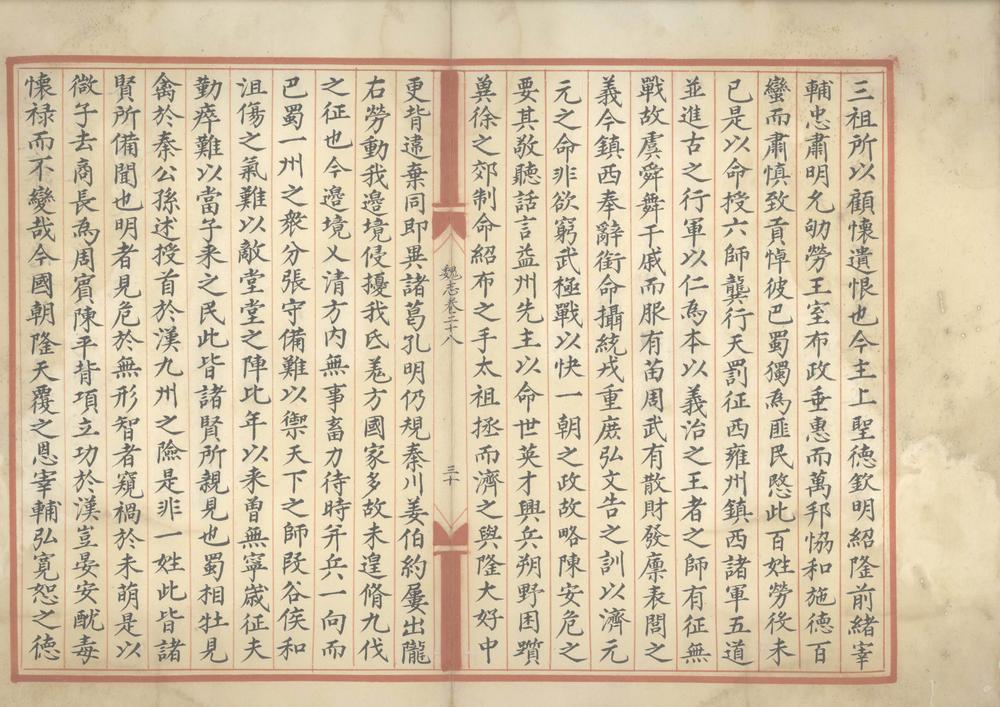 三祖所以顧懷遺恨也今主上聖德欽明紹隆前緒宰
輔忠肅明允劬勞王室布政垂惠而萬邦恊和施德百
蠻而肅慎致貢悼彼巴蜀獨為匪民愍此百姓勞役未
已是以命授六師龔行天罰征西雍州鎮西諸軍五道
並進古之行軍以仁為本以義治之王者之師有征無
戰故虞舜舞干戚而服有苗周武有散財發廩表閭之
義今鎮西奉辭銜命攝統戎重庶弘文告之訓以濟元
元之命非欲窮武極戰以快一朝之政故略陳安危之
要其敬聽話言益州先主以命世英才興兵朔野困躓
兾徐之郊制命紹布之手太祖拯而濟之與隆大好中
魏志卷二十八
三十
更背違棄同即異諸葛孔明仍規秦川姜伯約屢出隴
右勞動我邊境侵擾我氐羌方國家多故未遑脩九伐
之征也今邊境乂清方內無事畜力待時并兵一向而
巴蜀一州之衆分張守備難以禦天下之師叚谷侯和
沮傷之氣難以敵堂堂之陣比年以来曾無寧歲征夫
勤瘁難以當子来之民此皆諸賢所親見也蜀相牡見
禽於秦公孫述授首於漢九州之險是非一姓此皆諸
賢所備聞也明者見危於無形智者窺禍於未萌是以
微子去商長為周賓陳平背項立功於漢豈晏安酖毒
懷禄而不變哉今國朝隆天覆之恩宰輔弘寬恕之德